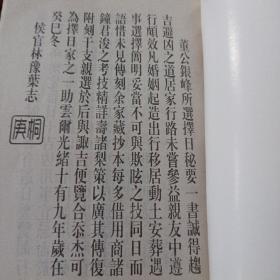 董公銀峰所選擇日秘要一書誠得趨
吉避凶之道居家行路未嘗參益親友中遵
行頗效凡婚姻起造出行移居動土安葬遇
事選擇簡明妥當不可與欺眩之技同日而
語惜未見傳刻余家藏抄本每多借用商諸
鐘君浚之考技精詳壽諸棃策以廣其傳復
附刻干支親選於后與諏吉便覽合叅杰可
為擇日家之一助雲爾光緒十有九年歲在
癸巳冬
侯官林豫葉志